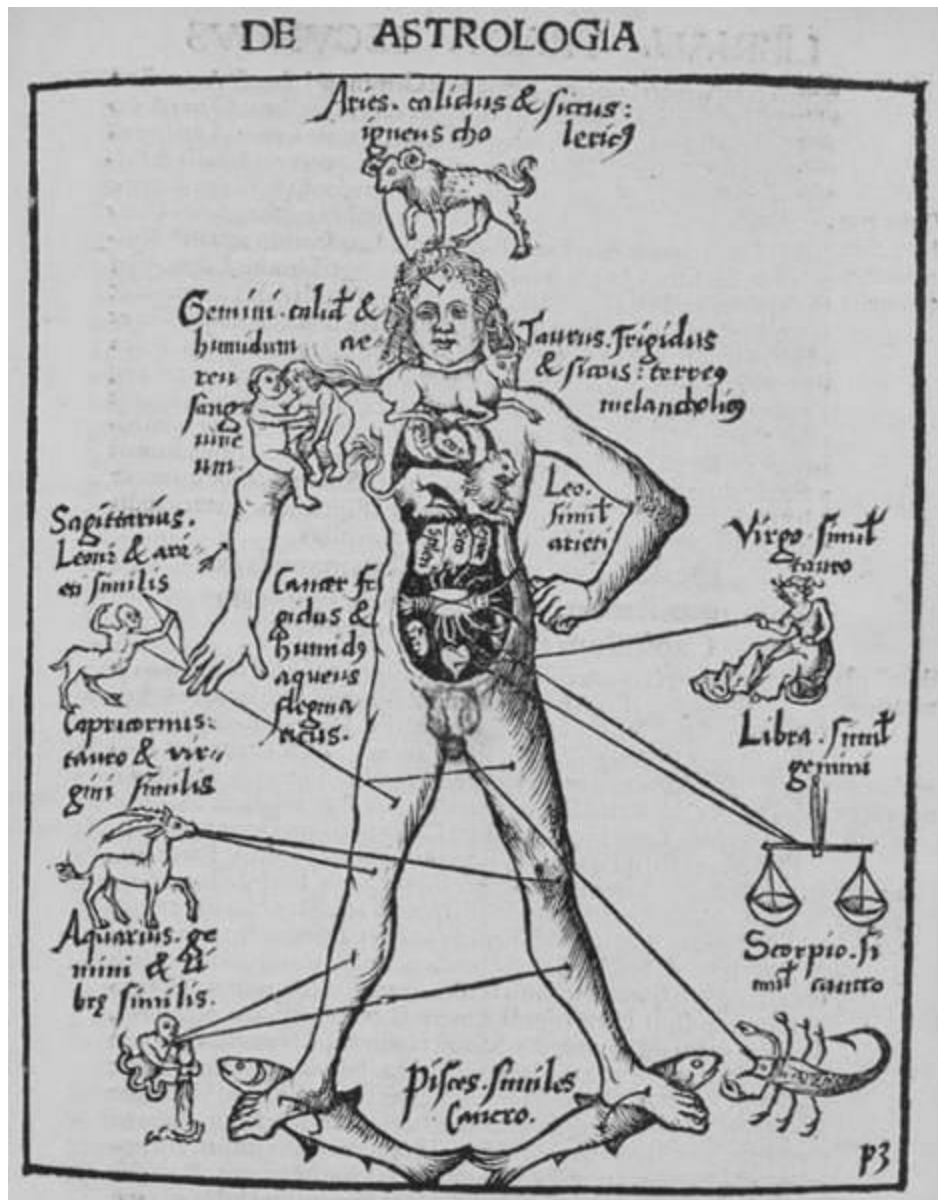 DE ASTROLOGIA
Aries. calidus & siccus:
igneus cho lericꝰ
Gemini. calid᷒ &
humidum ae
reu
sang
uine
um.
Taurus. frigidus
& siccus: terreꝰ
melancholicꝰ
Leo.
simil᷒
arieti
Sagittarius.
Leoni & ari-
eti similis
Cancer fri
gidus &
humidꝰ
aqueus
flegma
ticus.
Virgo. simil᷒
tauro
Capricornus:
tauro & vir-
gini similis
Libra. simil᷒
gemini
Aquarius. ge
mini & li
brę similis.
Scorpio. si
mil᷒ cancro
Pisces. similes
Cancro.
p3